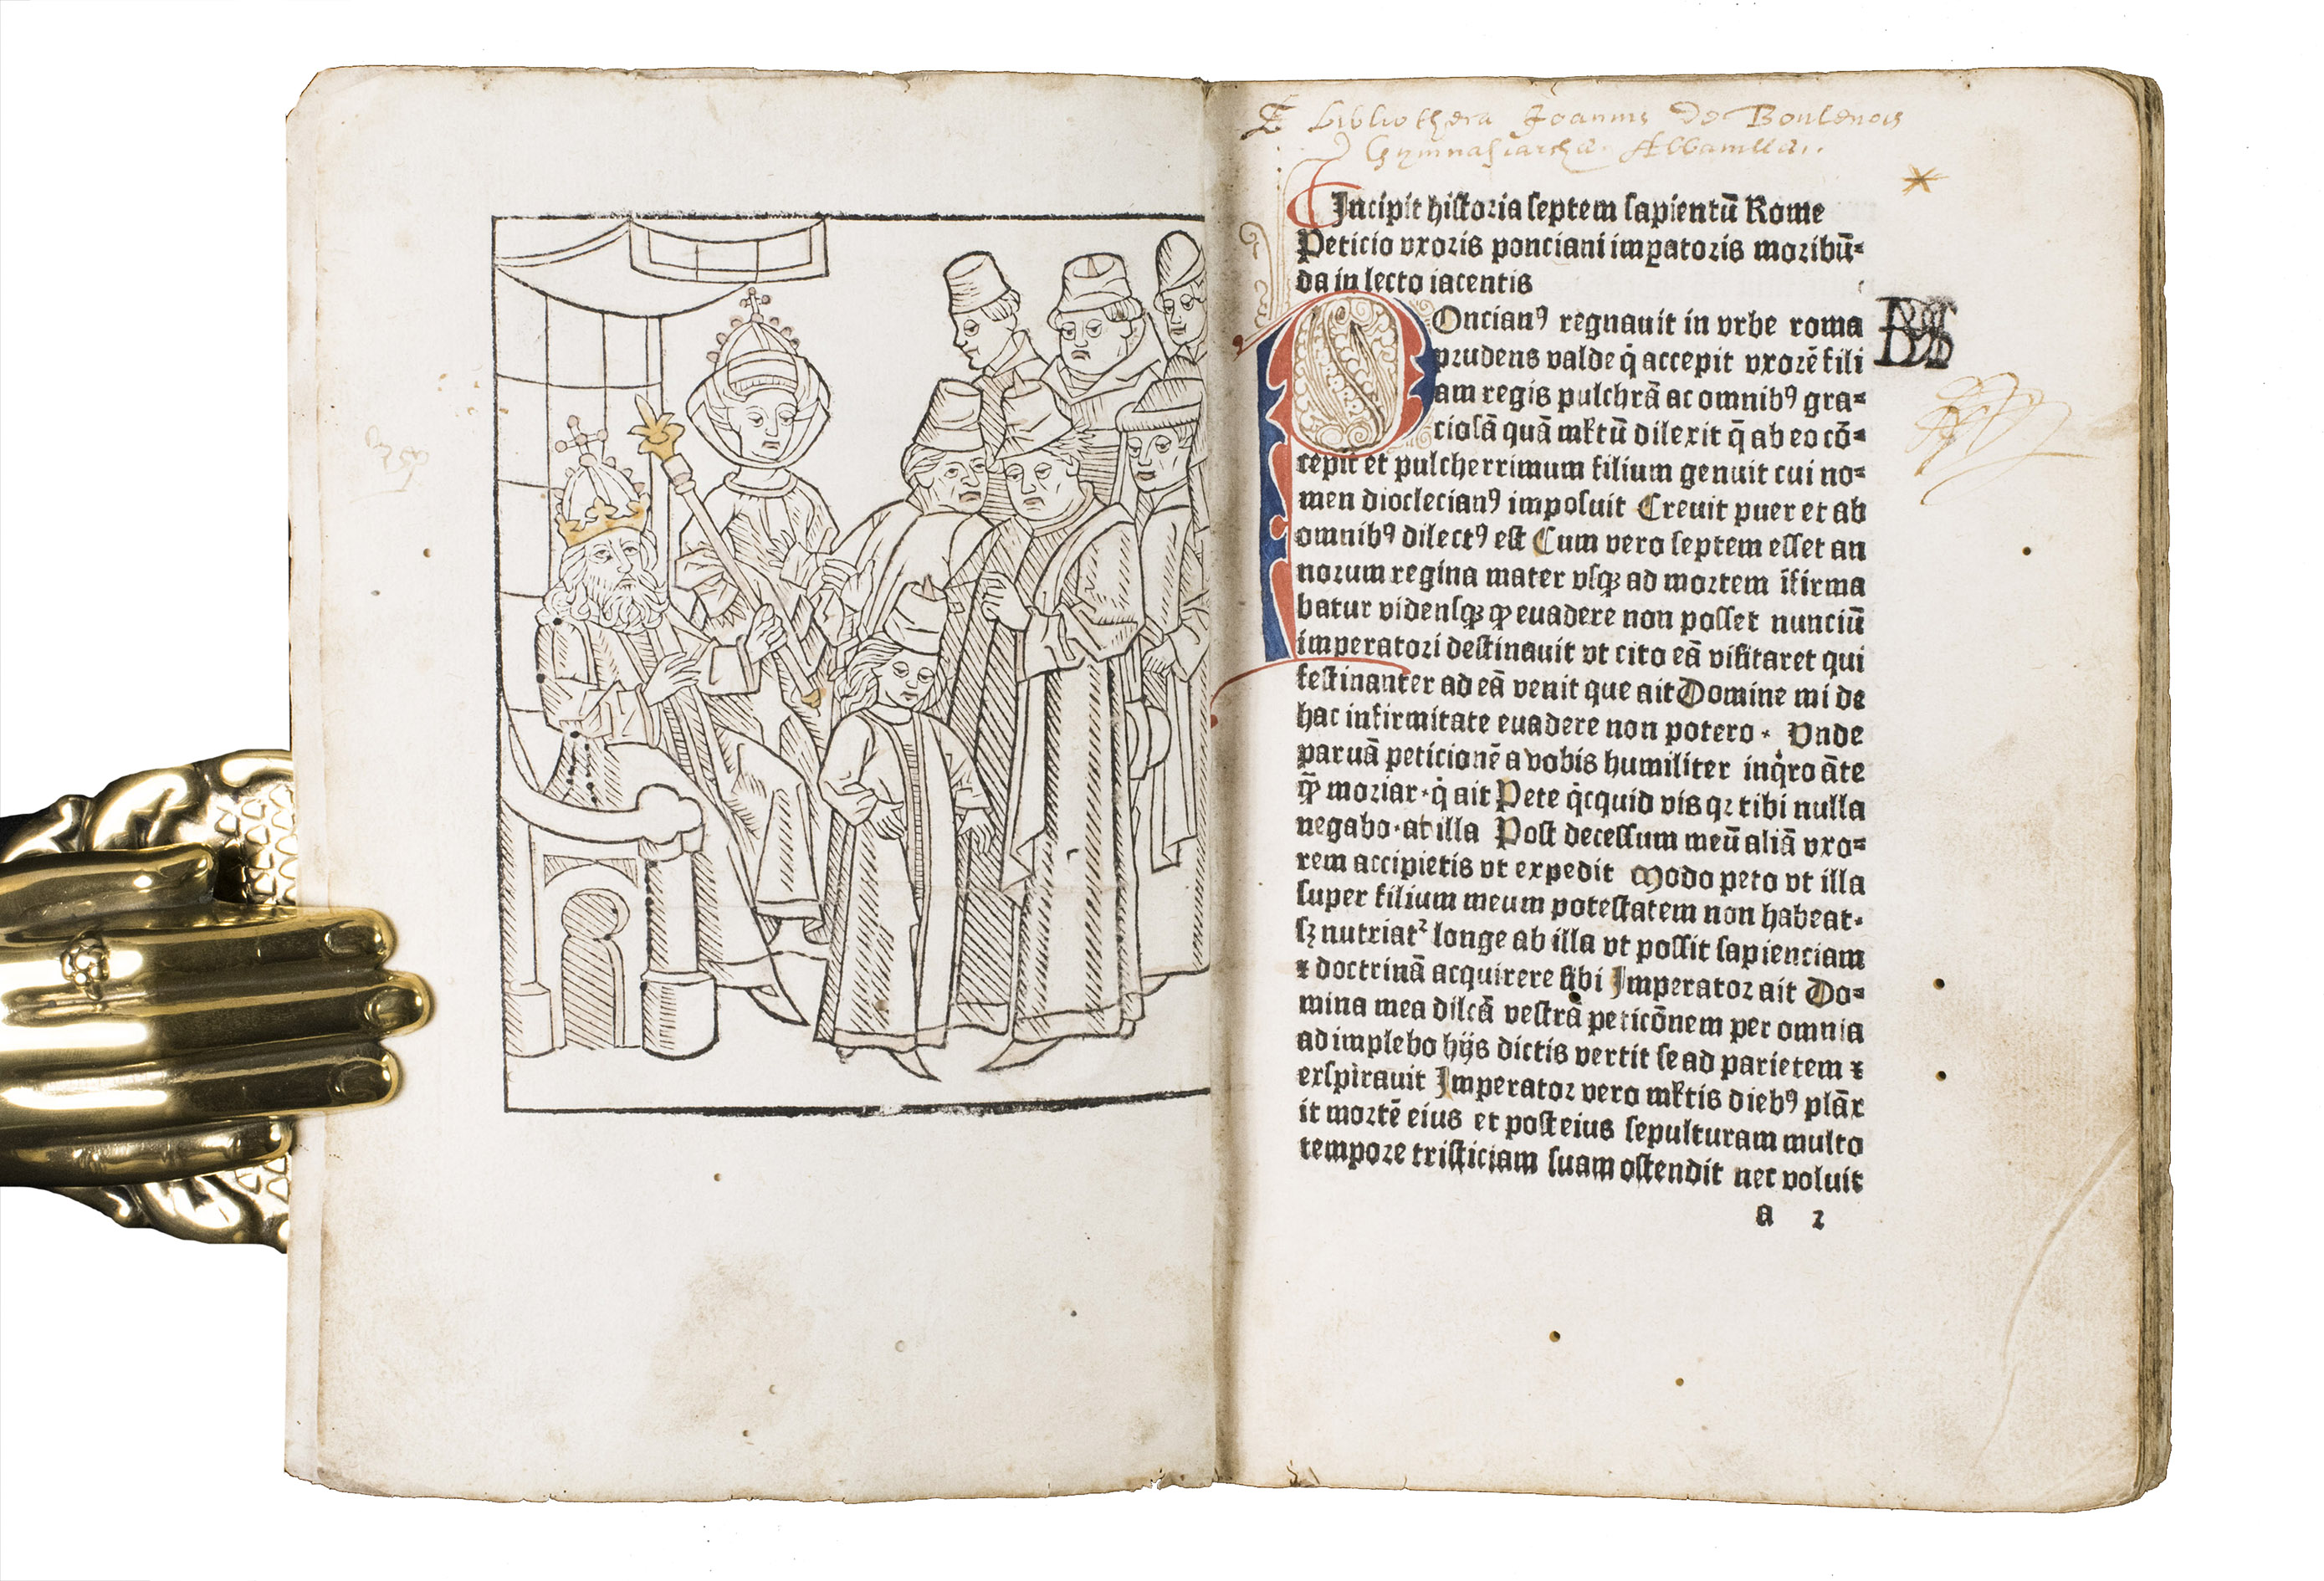 E bibliotheca Joannis De Boulenois
Gymnasiarchæ Abbavillæi.
Incipit hiſtoria ſeptem ſapientū Rome
Peticio vxoris ponciani imꝑatoris moribū⸗
da in lecto iacentis
POncianꝰ regnauit in vrbe roma
prudens valde q̇ accepit vxorē fili
am regis pulchrā ac omnibꝰ gra⸗
cioſā quā mltū dilexit q̄ ab eo cō⸗
cepit et pulcherrimum filium genuit cui no⸗
men dioclecianꝰ impoſuit Creuit puer et ab
omnibꝰ dilectꝰ eſt Cum vero ſeptem eſſet an
norum regina mater vſqꝫ ad mortem īfirma
batur videnſqꝫ ꝙ euadere non poſſet nunciū
imperatori deſtinauit vt cito eā viſitaret qui
feſtinanter ad eā venit que ait Domine mi de
hac infirmitate euadere non potero · Vnde
paruā peticionē a vobis humiliter inq̇ro āte
qꝫ̄ moriar · q̇ ait Pete q̇cquid vis qꝛ tibi nulla
negabo · at illa Poſt deceſſum meū aliā vxo⸗
rem accipietis vt expedit Modo peto vt illa
ſuper filium meum poteſtatem non habeat ·
ſꝫ nutriatᷣ longe ab illa vt poſſit ſapienciam
⁊ doctrinā acquirere ſibi Imperator ait Do⸗
mina mea dilcā veſtrā peticōnem per omnia
adimplebo hijs dictis vertit ſe ad parietem ⁊
exſpirauit Imperator vero mltis diebꝰ plāx
it mortē eius et poſt eius ſepulturam multo
tempore triſticiam ſuam oſtendit nec voluit
a 2